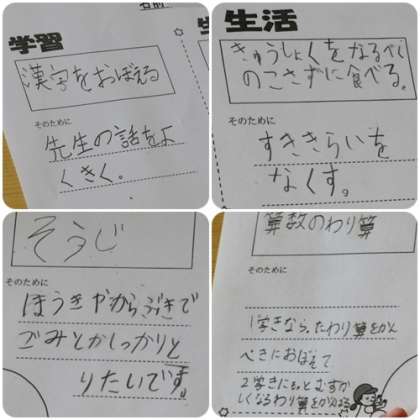 学習
漢字をおぼえる
そのために
先生の話をよ
くきく。
生活
きゅうしょくをなるべく
のこさずに食べる。
そのために
すききらいを
なくす。
そうじ
そのために
ほうきやからぶきで
ごみとかしっかりと
りたいです。
算数のわり算
そのために
1学きなら、たわり算をかん
ぺきにおぼえて
2学きにもっとむずか
しくなるわり算をがんばる